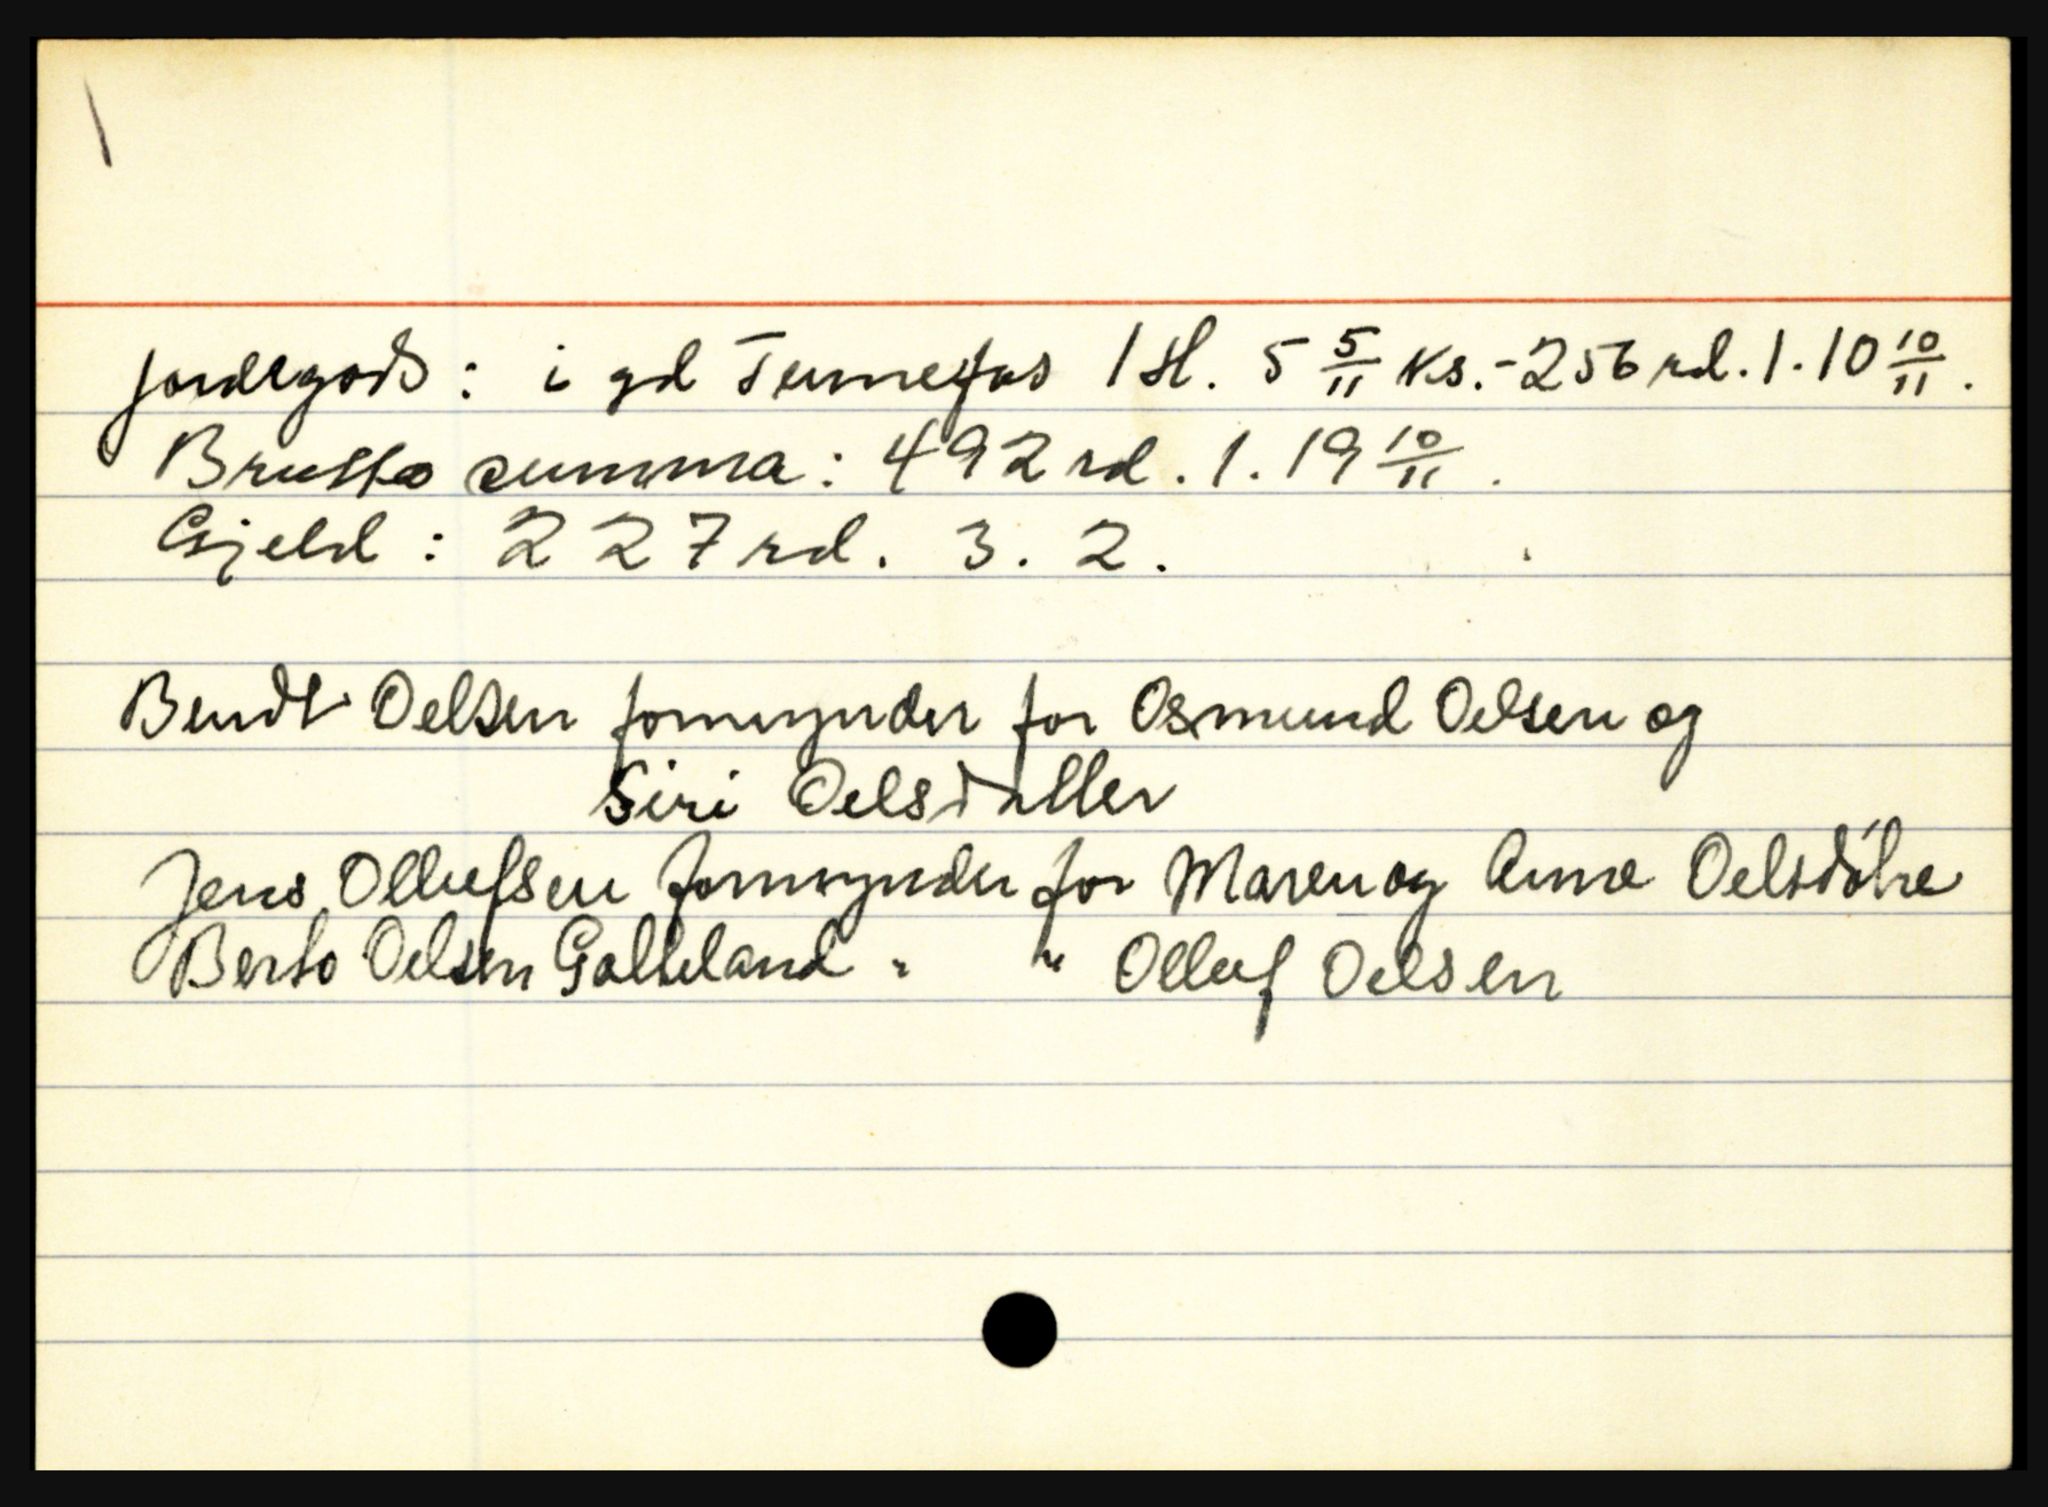 jordegods: i gd Tunnefos 1 sl. 5 5/11 ks.-256 rd. 1. 10 10/11.
Brutto summa: 492 rd. 1. 19 10/11.
Gjeld: 227 rd. 3. 2.
Bendt Oelsen formynder for Osmund Oelsen og
Siri Oelsdatter
Jens Ollufsen formynder for Maren og Anne Oelsdötre
Berto Oelsen Galteland " " Olluf Oelsen